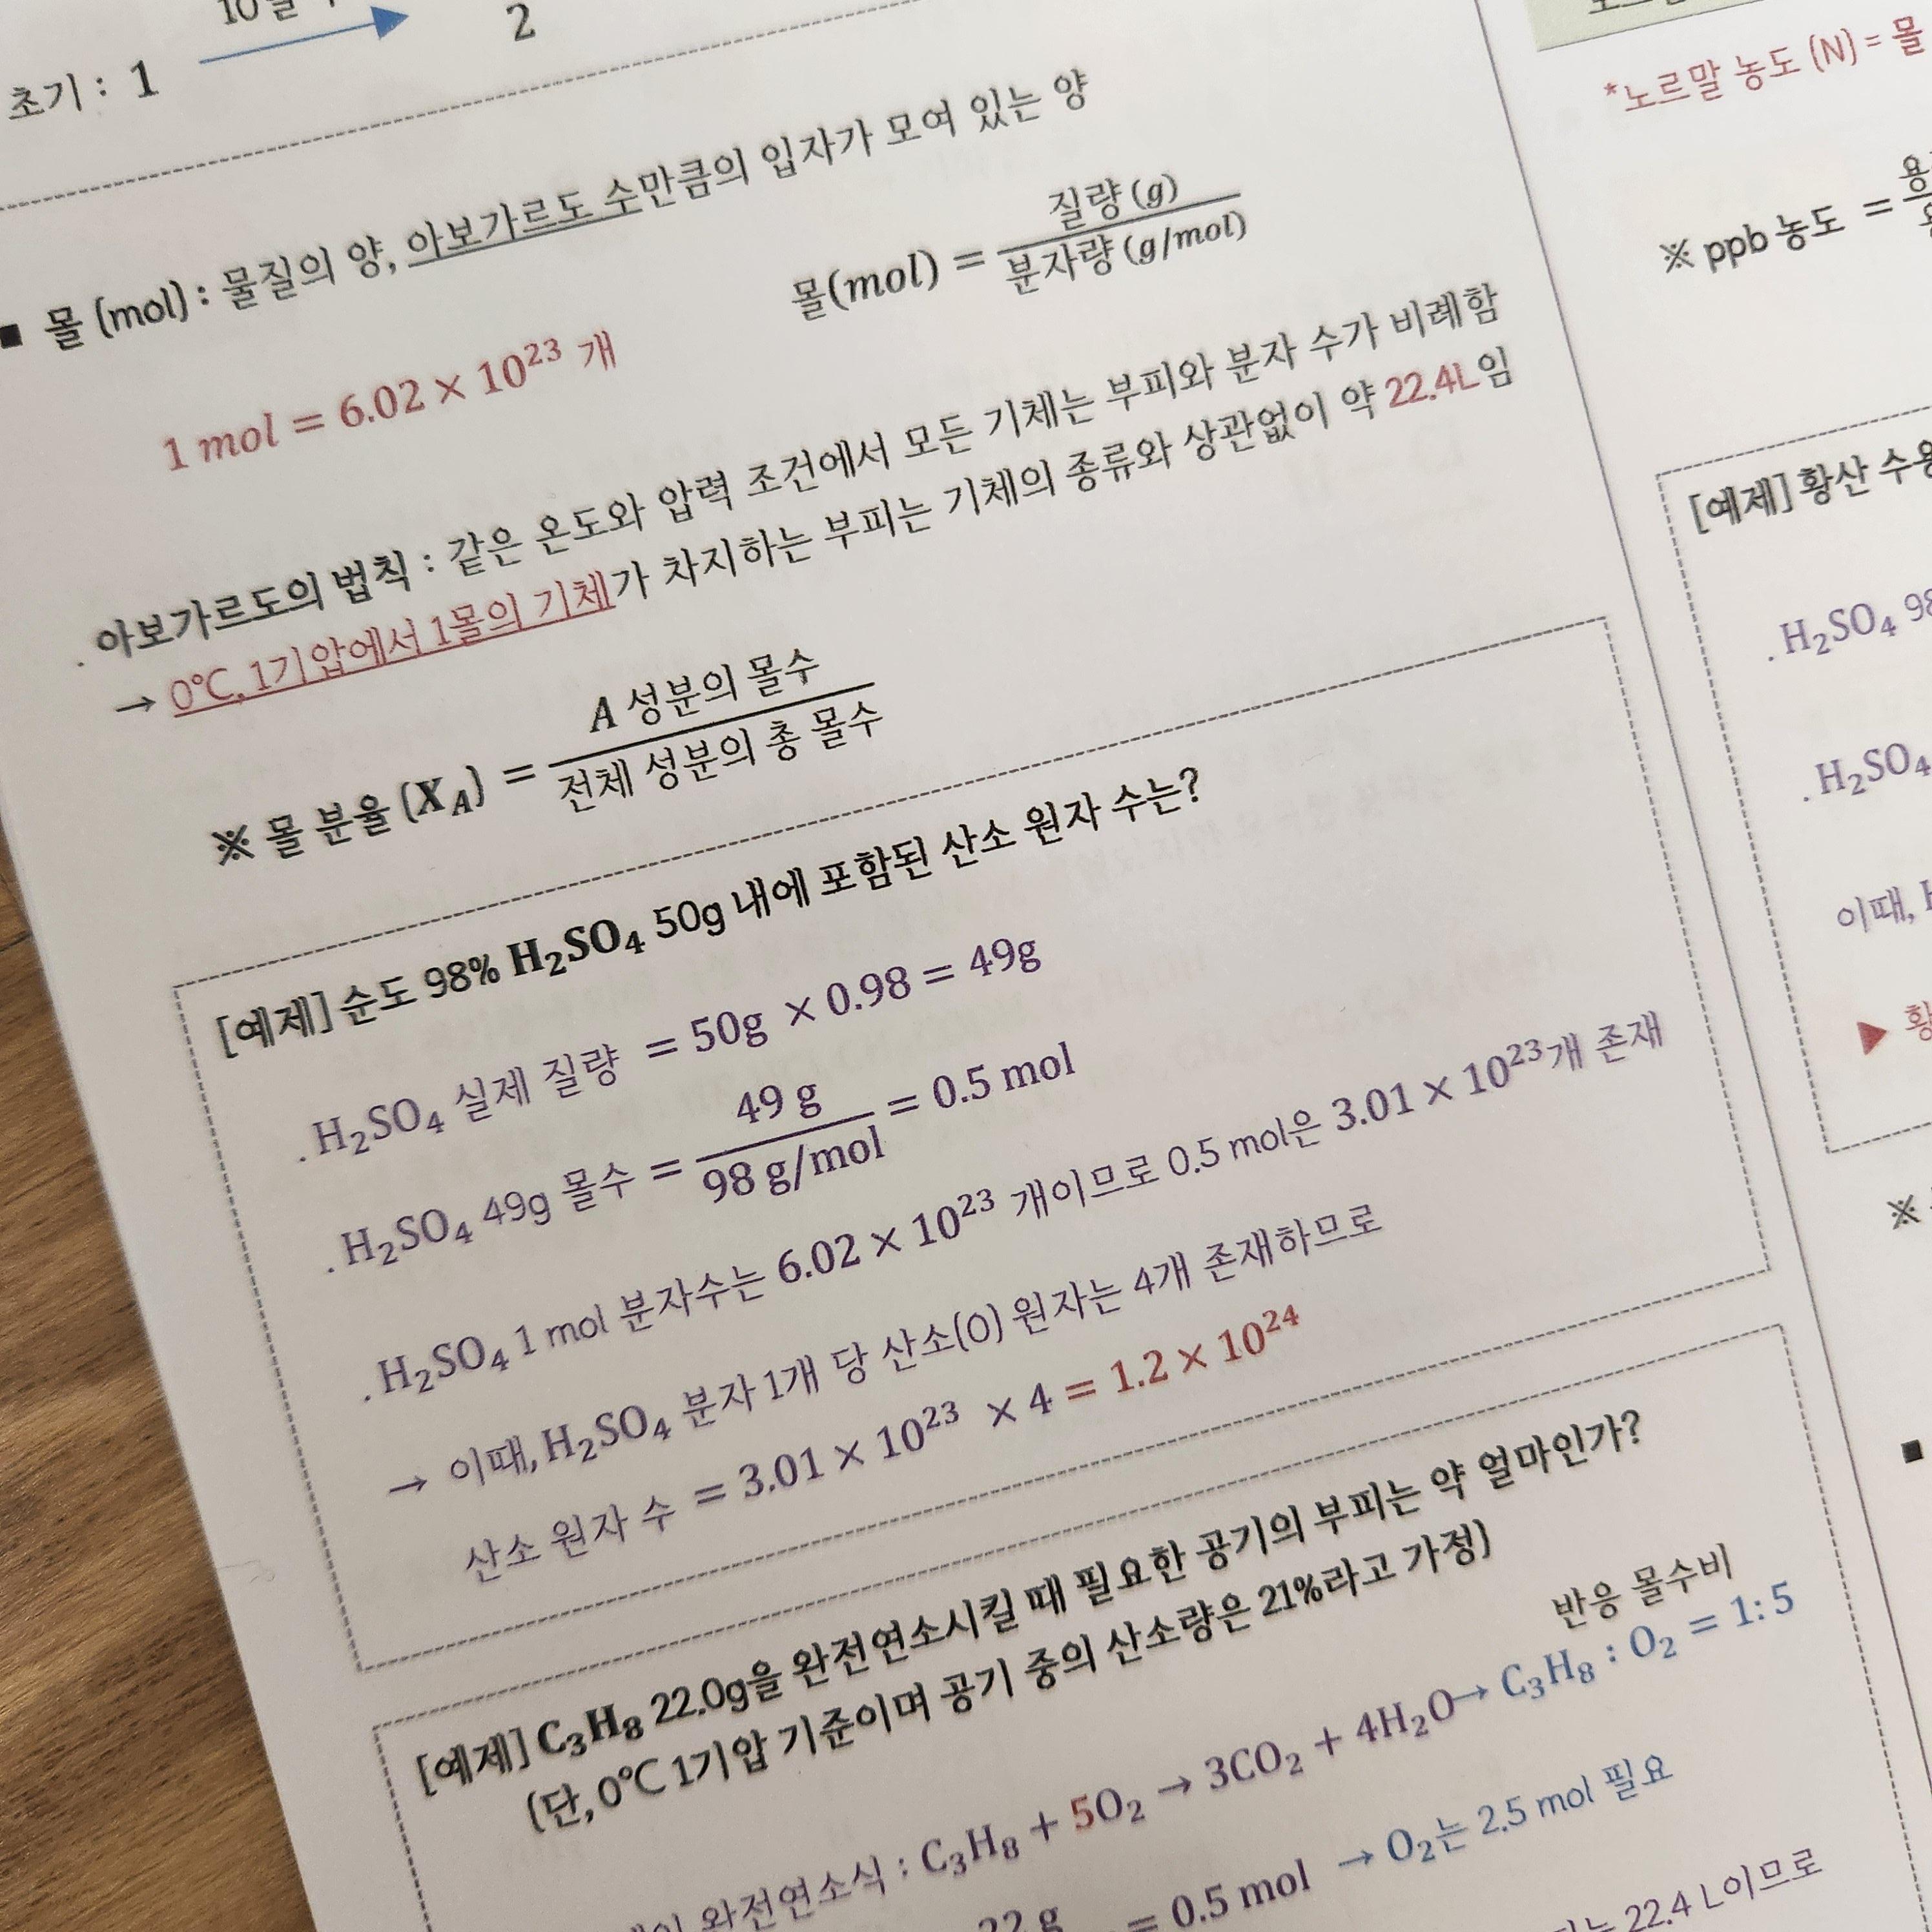 초기 : 1
2
■ 몰 (mol) : 물질의 양, 아보가르도 수만큼의 입자가 모여 있는 양
1 mol = 6.02 × 10²³ 개
몰(mol) = 질량 (g) / 분자량 (g/mol)
. 아보가르도의 법칙 : 같은 온도와 압력 조건에서 모든 기체는 부피와 분자 수가 비례함
→ 0℃, 1기압에서 1몰의 기체가 차지하는 부피는 기체의 종류와 상관없이 약 22.4L임
※ 몰 분율 (X_A) = A 성분의 몰수 / 전체 성분의 총 몰수
[예제] 순도 98% H₂SO₄ 50g 내에 포함된 산소 원자 수는?
. H₂SO₄ 실제 질량 = 50g × 0.98 = 49g
. H₂SO₄ 49g 몰수 = 49 g / 98 g/mol = 0.5 mol
. H₂SO₄ 1 mol 분자수는 6.02 × 10²³ 개이므로 0.5 mol은 3.01 × 10²³개 존재
→ 이때, H₂SO₄ 분자 1개 당 산소(O) 원자는 4개 존재하므로
산소 원자 수 = 3.01 × 10²³ × 4 = 1.2 × 10²⁴
[예제] C₃H₈ 22.0g을 완전연소시킬 때 필요한 공기의 부피는 약 얼마인가?
(단, 0℃ 1기압 기준이며 공기 중의 산소량은 21%라고 가정)
반응 몰수비
완전연소식 : C₃H₈ + 5O₂ → 3CO₂ + 4H₂O → C₃H₈ : O₂ = 1: 5
22 g = 0.5 mol → O₂는 2.5 mol 필요
는 22.4 L이므로
*노르말 농도 (N) = 몰
※ ppb 농도 =
[예제] 황산
. H₂SO₄ 98
. H₂SO₄
이때,
▶
※
■